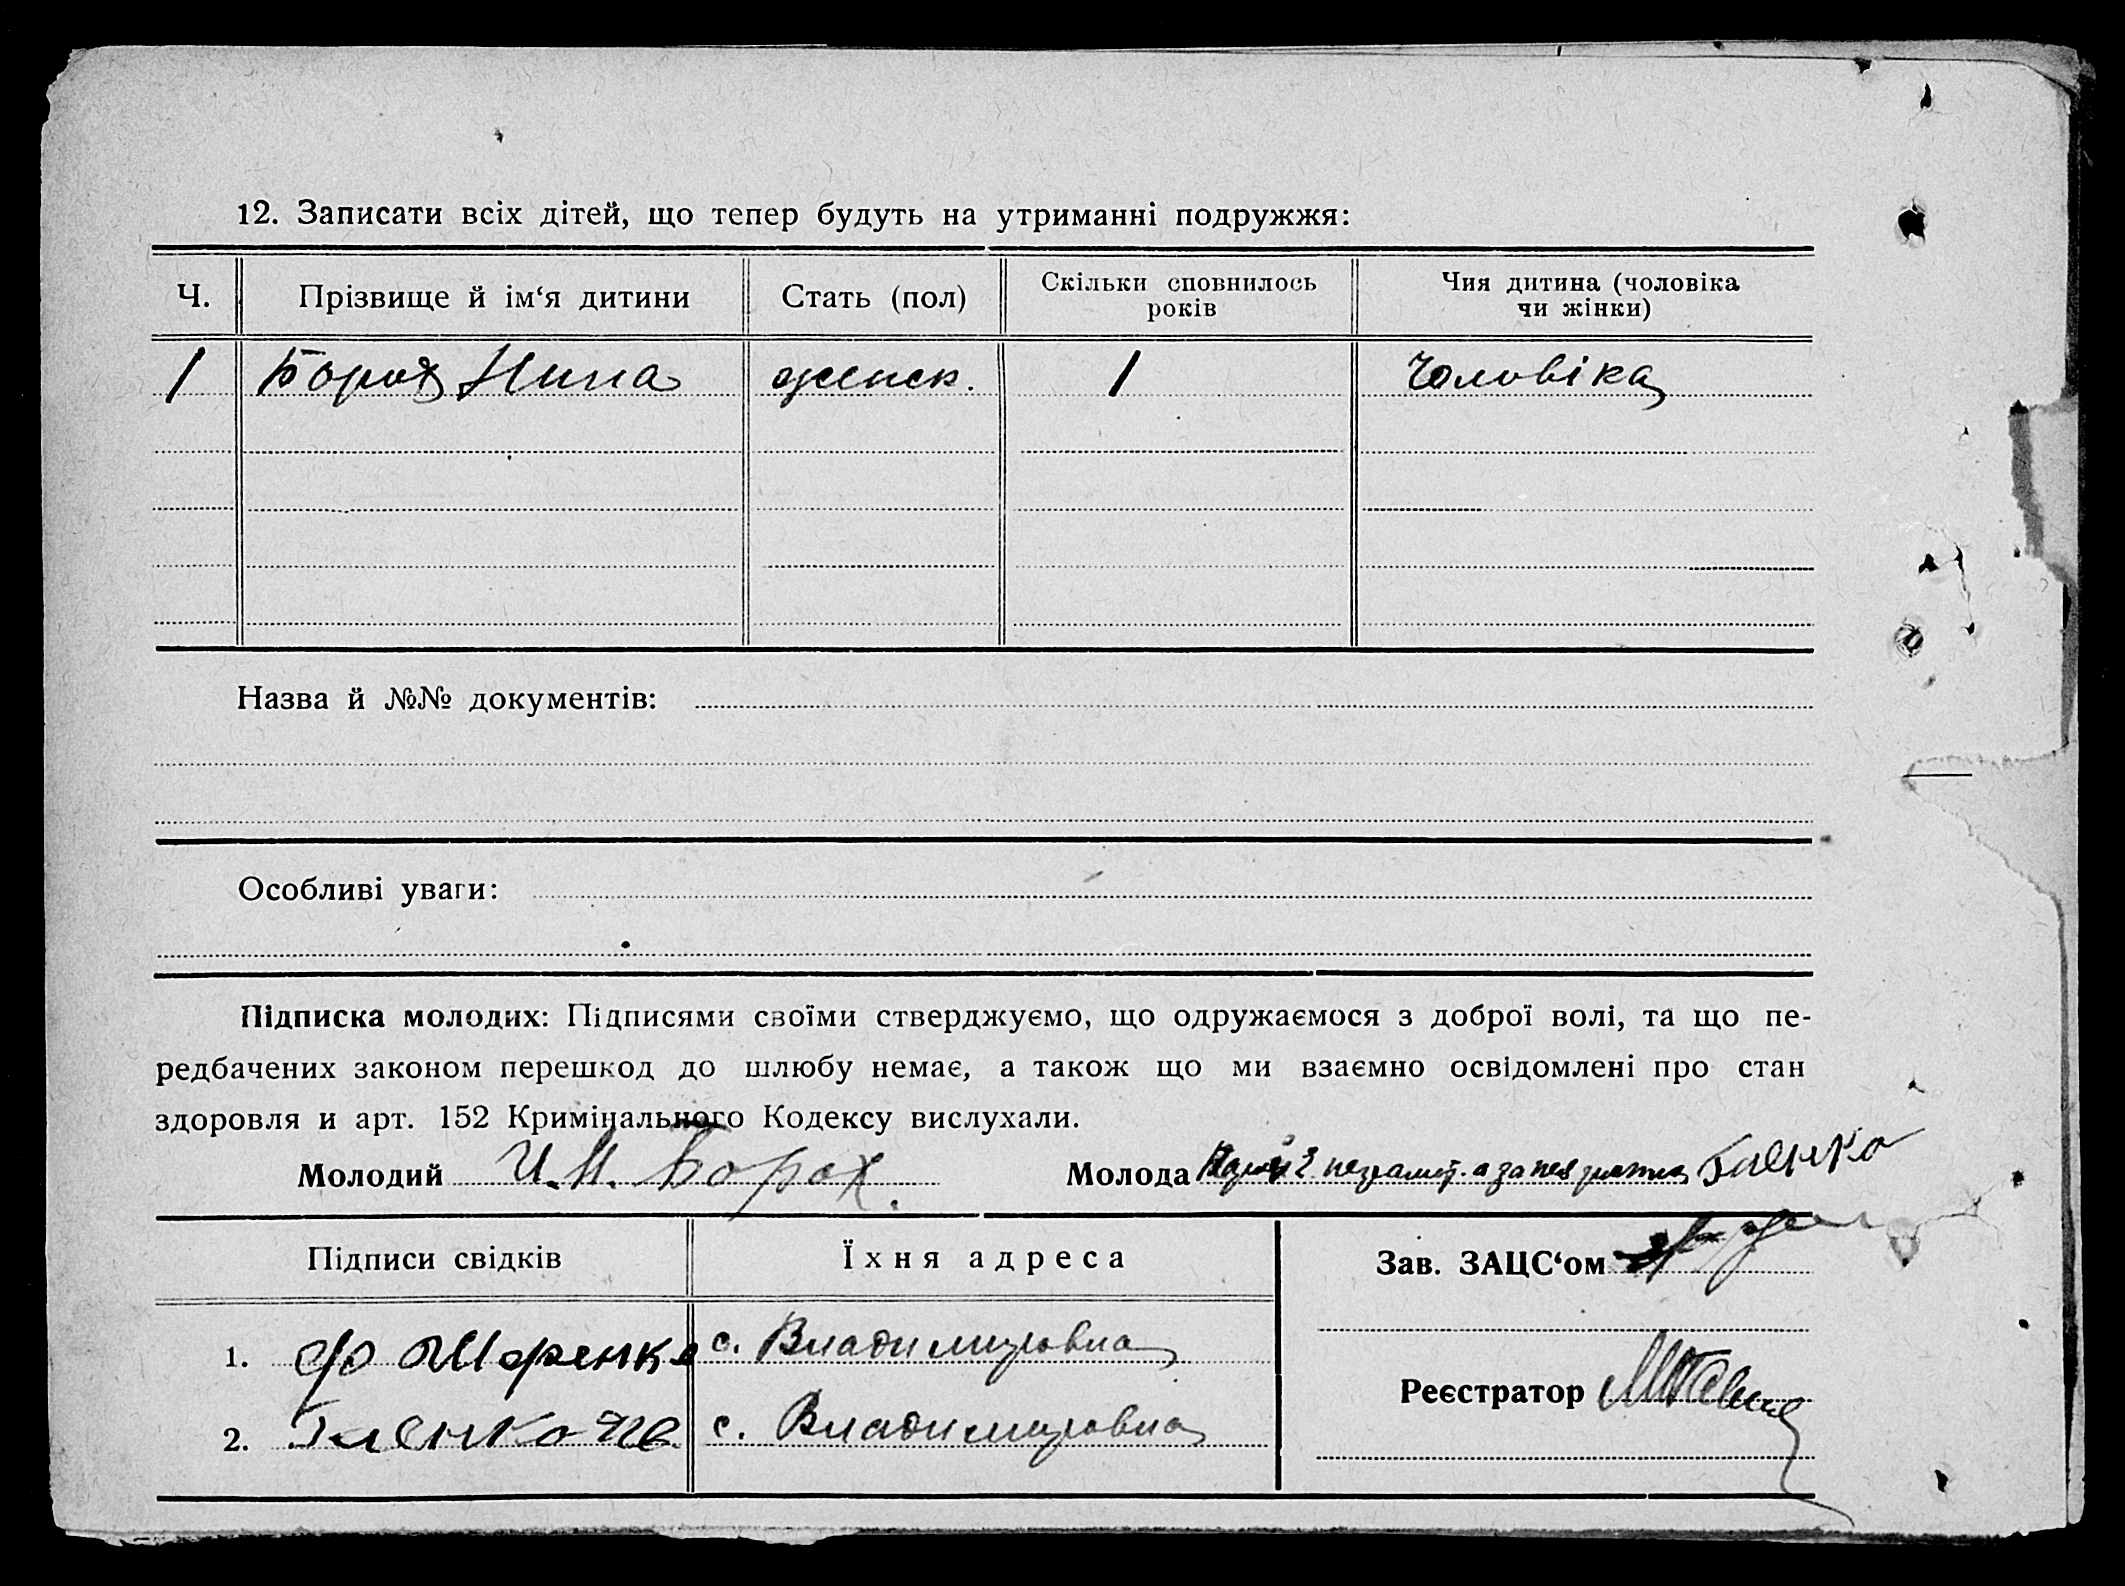 12. Записати всіх дітей, що тепер будуть на утриманні подружжя:
Ч. Прізвище й ім‘я дитини Стать (пол) Скільки сповнилось років Чия дитина (чоловіка чи жінки)
1 Борох Нина женск. 1 Чоловіка
Назва й №№ документів:
Особливі уваги:
Підписка молодих: Підписями своїми стверджуємо, що одружаємося з доброї волі, та що пе-
редбачених законом перешкод до шлюбу немає, а також що ми взаємно освідомлені про стан
здоровля и арт. 152 Кримінального Кодексу вислухали.
Молодий И. М. Борох. Молода неграмот. а за нея Гаенко
Підписи свідків Їхня адреса Зав. ЗАЦС‘ом
1. с. Владимировка
Реєстратор
2. Гаенко с. Владимировка